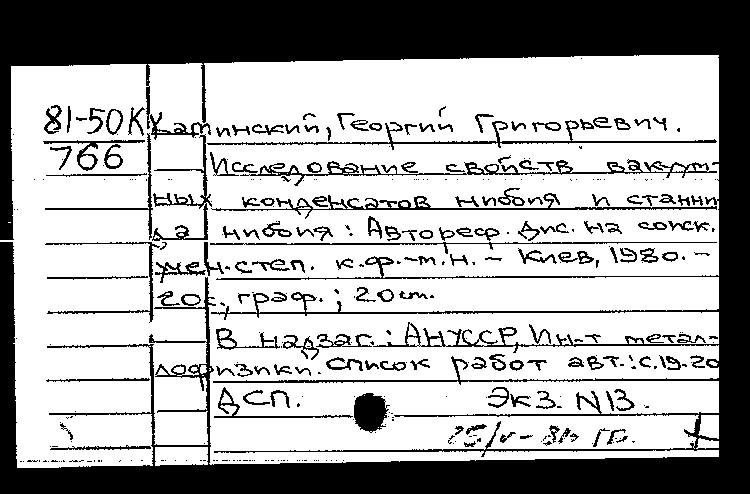 81-50К Каминский, Георгий Григорьевич.
766 Исследование свойств вакуум-
ных конденсатов ниобия и станни
да ниобия: Автореф. дис. на соиск.
учен. степ. к.ф.-м.н. – Киев, 1980. –
20с., граф.; 20 см.
В надзаг.: АНУССР, Ин-т метал-
лофизики. Список работ авт.: с.19-20
ДСП. Экз. N13.